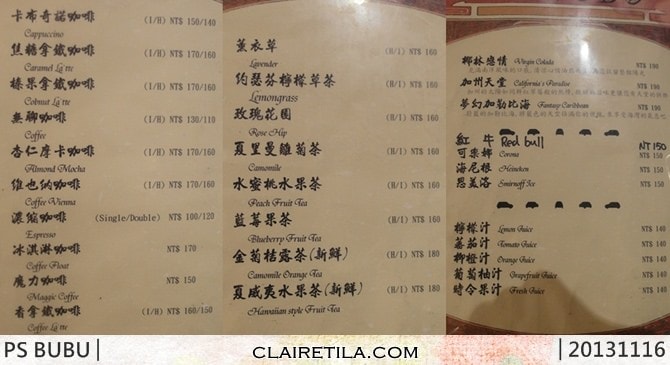 卡布奇諾咖啡 (I/H) NT$ 150/140
Cappuccino
焦糖拿鐵咖啡 (I/H) NT$ 170/160
Caramel La'tte
榛果拿鐵咖啡 (I/H) NT$ 170/160
Cobnut La'tte
無聊咖啡 (I/H) NT$ 130/110
Coffee
杏仁摩卡咖啡 (I/H) NT$ 170/160
Almond Mocha
維也納咖啡 (I/H) NT$ 170/160
Coffee Vienna
濃縮咖啡 (Single/Double) NT$ 100/120
Espresso
冰淇淋咖啡 NT$ 170
Coffee Float
魔力咖啡 NT$ 150
Maggic Coffee
看拿鐵咖啡 (I/H) NT$ 160/150
Coffee La'tte
薰衣草 (H/I) NT$ 160
Lavender
約瑟芬檸檬草茶 (H/I) NT$ 160
Lemongrass
玫瑰花園 (H/I) NT$ 160
Rose Hip
夏里曼雛菊茶 (H/I) NT$ 160
Camomile
水蜜桃水果茶 (H/I) NT$ 160
Peach Fruit Tea
藍莓果茶 (H/I) NT$ 160
Blueberry Fruit Tea
金菊桔露茶(新鮮) (H/I) NT$ 180
Camomile Orange Tea
夏威夷水果茶(新鮮) (H/I) NT$ 180
Hawaiian style Fruit Tea
椰林戀情 Virgin Colada NT$ 190
加州天堂 California's Paradise NT$ 190
夢幻加勒比海 Fantasy Caribbean NT$ 190
紅牛 Red bull NT 150
可樂娜 Corona NT$ 150
海尼根 Heineken NT$ 150
思美洛 Smirnoff Ice NT$ 150
檸檬汁 Lemon Juice NT$ 140
蕃茄汁 Tomato Juice NT$ 140
柳橙汁 Orange Juice NT$ 140
葡萄柚汁 Grapefruit Juice NT$ 140
時令果汁 Fresh Juice NT$ 140
PS BUBU | CLAIRETILA.COM | 20131116